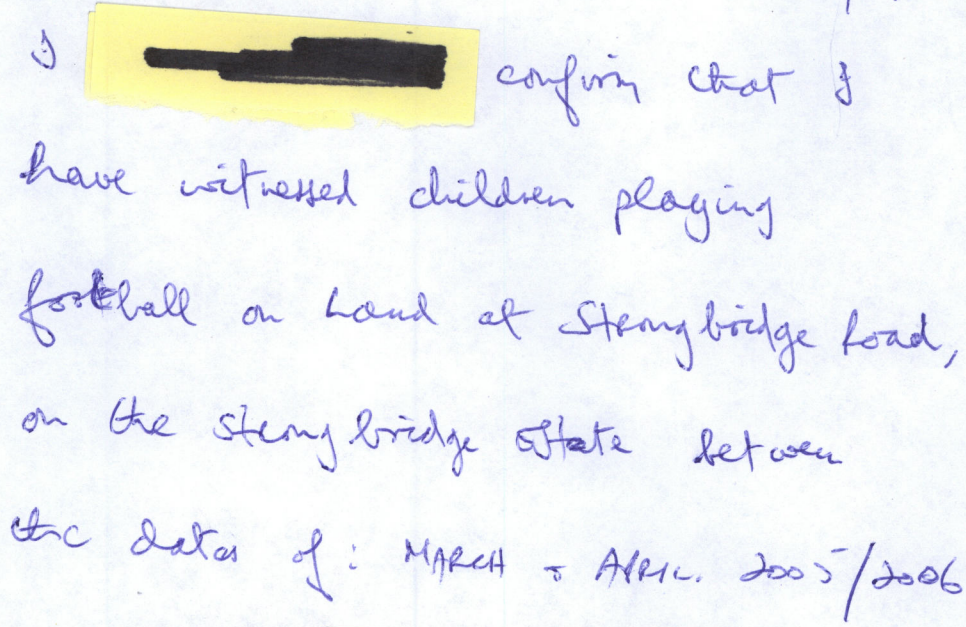 I confirm that I
have witnessed children playing
football on land at Strongbridge Road,
on the Strongbridge Estate between
the dates of: MARCH - APRIL. 2005/2006